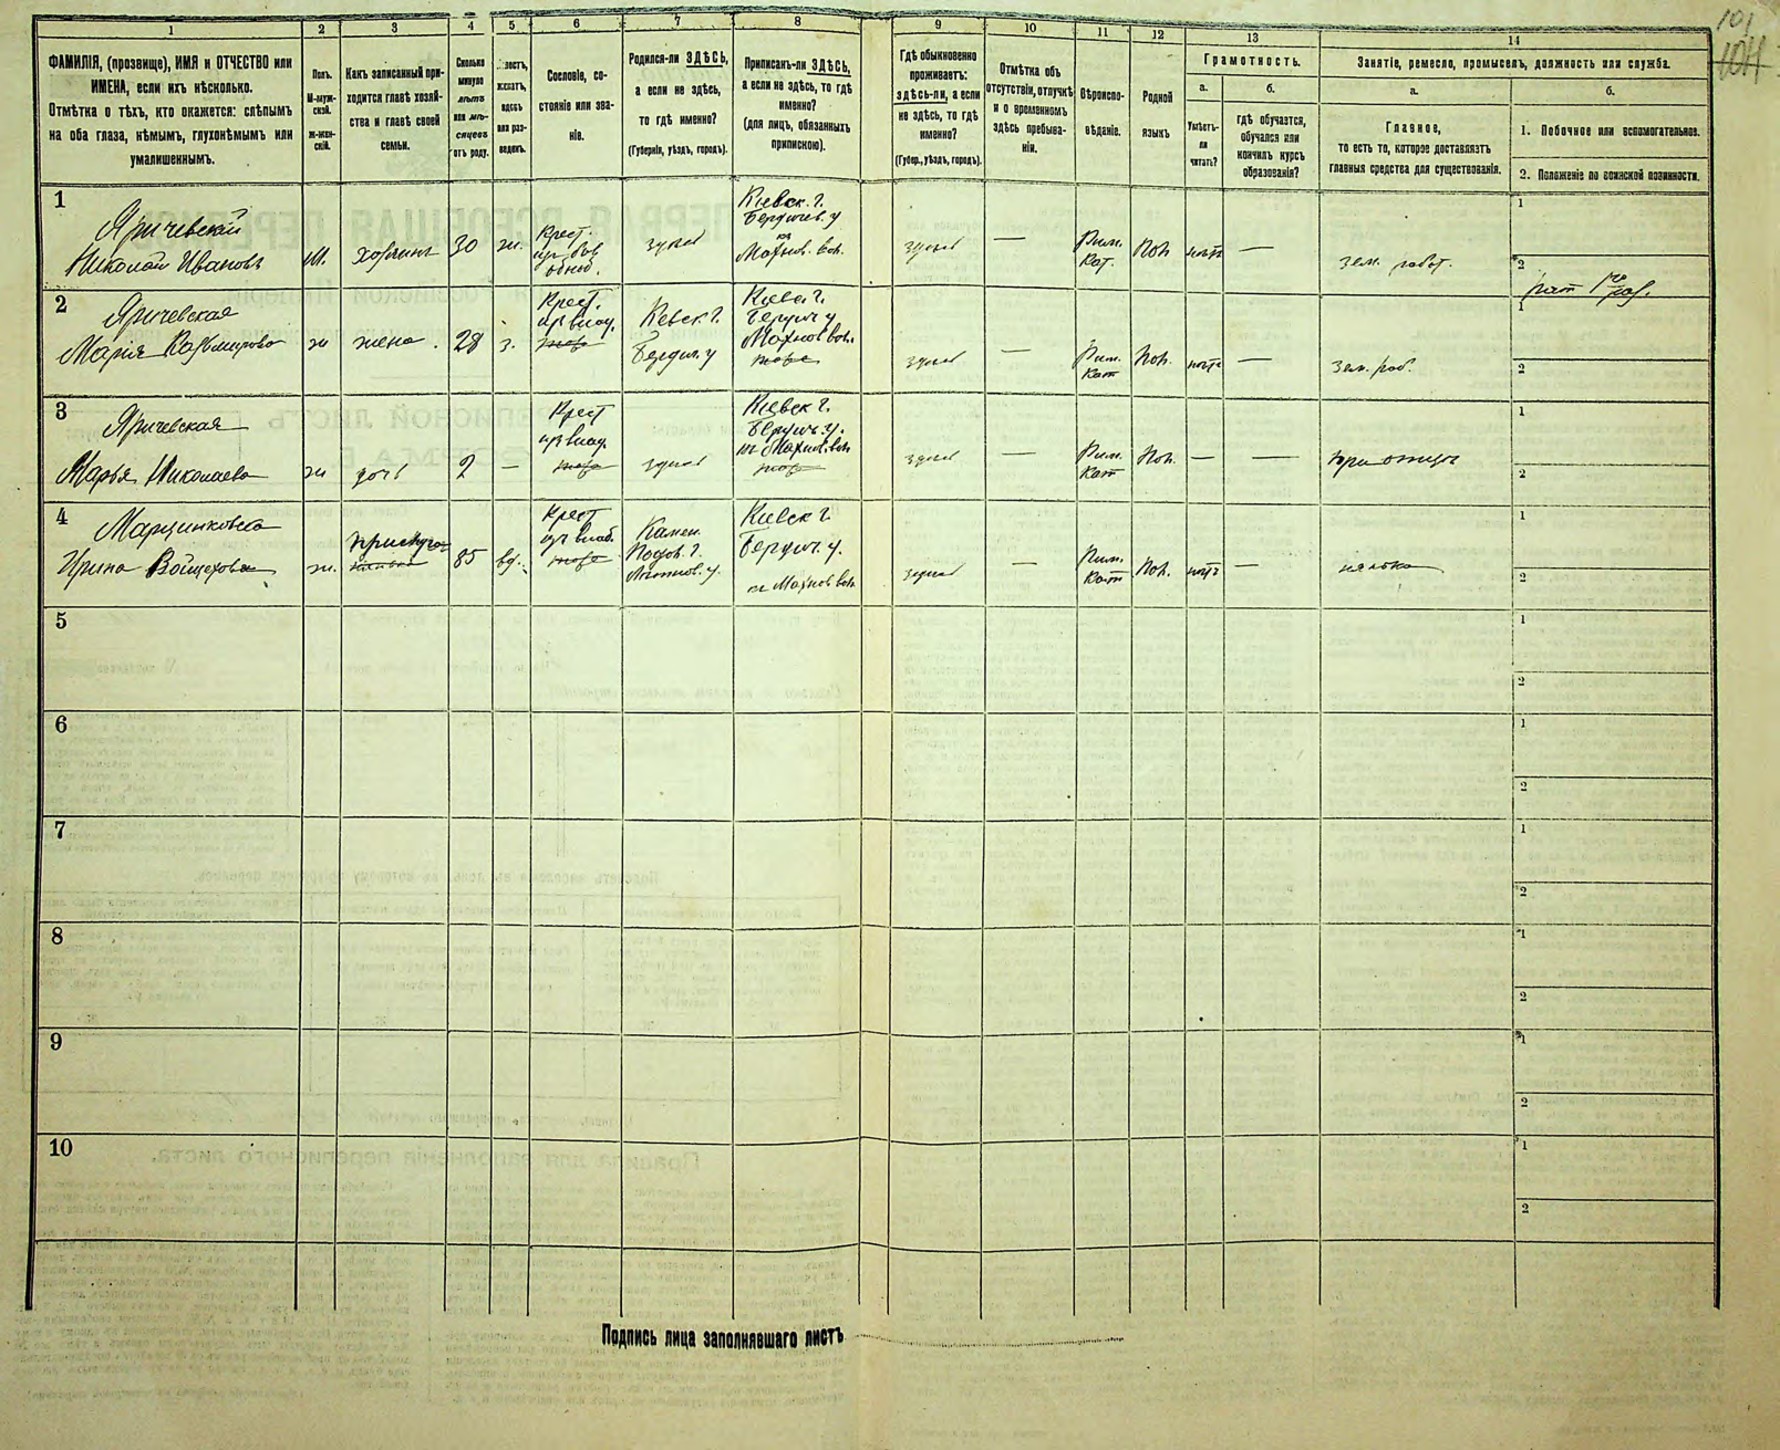 101
1
2
3
4
5
6
7
8
9
10
11
12
13
14
ФАМИЛІЯ, (прозвище), ИМЯ и ОТЧЕСТВО или
ИМЕНА, если ихъ нѣсколько.
Отмѣтка о тѣхъ, кто окажется: слѣпымъ
на оба глаза, нѣмымъ, глухонѣмымъ или
умалишеннымъ.
Полъ.
М-муж-
ской.
Ж-жен-
скій.
Какъ записанный при-
ходится главѣ хозяй-
ства и главѣ своей
семьи.
Сколько
минуло
лѣтъ
или мѣ-
сяцевъ
отъ роду.
женатъ,
вдовъ
или раз-
веденъ.
Сословіе, со-
стояніе или зва-
ніе.
Родился-ли ЗДѢСЬ,
а если не здѣсь,
то гдѣ именно?
(Губернія, уѣздъ, городъ).
Приписанъ-ли ЗДѢСЬ,
а если не здѣсь, то гдѣ
именно?
(для лицъ, обязанныхъ
припискою).
Гдѣ обыкновенно
проживаетъ:
здѣсь-ли, а если
не здѣсь, то гдѣ
именно?
(Губер., уѣздъ, городъ).
Отмѣтка объ
отсутствіи, отлучкѣ
и о временномъ
здѣсь пребыва-
ніи.
Вѣроиспо-
вѣданіе.
Родной
языкъ
Грамотность.
а.
Умѣетъ-
ли
читать?
б.
гдѣ обучается,
обучался или
кончилъ курсъ
образованія?
Занятіе, ремесло, промыселъ, должность или служба.
а.
Главное,
то есть то, которое доставляетъ
главныя средства для существованія.
б.
1. Побочное или вспомогательное.
2. Положеніе по воинской повинности.
1
Яричевскій
Николай Ивановъ
М.
хозяинъ
30
ж.
Крест.
здѣсь
Кіевск. г.
Бердичев. у
Махнов. вол.
здѣсь
—
Рим.
Кат.
Пол
нѣтъ
—
зем. работ.
1
2
2
Яричевская
Марія Казимирова
ж
жена.
28
з.
Крест.
Кевск г.
Бердич. у
Киев. г.
Бердич у
Махнов вол.
здѣсь
—
Рим.
Кат
Пол.
нѣтъ
—
зем. раб.
1
2
3
Яричевская
Марья Николаева
ж
дочь
2
—
Крест
здѣсь
Кіевск г.
Бердич. у.
Махнов. вол
здѣсь
—
Рим.
Кат
Пол.
—
—
при отцѣ
1
2
4
Ирина Войцехова
ж.
85
вд.
Крест
Камен.
Подол. г.
Кіевск г.
Бердич. у.
Махнов вол
здѣсь
—
Рим.
Кат
Пол.
нѣтъ
—
нянька
1
2
5
1
2
6
1
2
7
1
2
8
1
2
9
1
2
10
1
2
Подпись лица заполнявшаго листъ